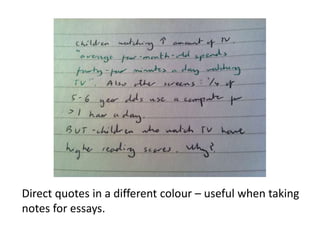 Children watching ↑ amount of TV
"average four-month-old spends
fourty-four minutes a day watching
TV". Also other screens: ¼ of
5-6 year olds use a computer for
> 1 hour a day.
BUT - children who watch TV have
higher reading scores. Why?
Direct quotes in a different colour – useful when taking
notes for essays.